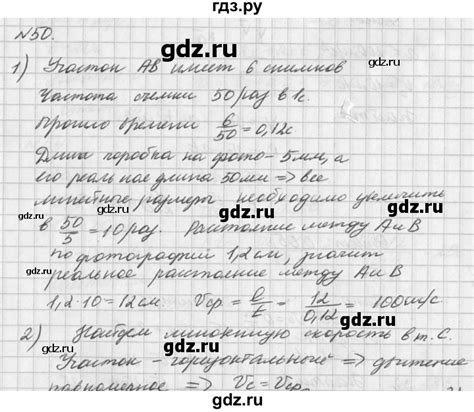 гдз.ру
№50.
1) Участок AB имеет 6 снимков
Частота съемки 50 раз в 1с.
Прошло времени 6/50 = 0,12с
Длина коробка на фото - 5мм, а
его реальное длина 50мм => все
линейные размеры необходимо увеличить
в 50/5 = 10 раз. Расстояние между A и B
по фотографии 1,2см, значит
реальное расстояние между A и B
1,2·10 = 12см. Vср = l/t = 12/0,12 = 100см/с
2) Найдем мгновенную скорость в т. С.
Участок - горизонтальный => движение
равномерное => Vc = Vср
gdz.ru
gdz.ru
gdz.ru
gdz.ru
gdz.ru
gdz.ru
gdz.ru
gdz.ru